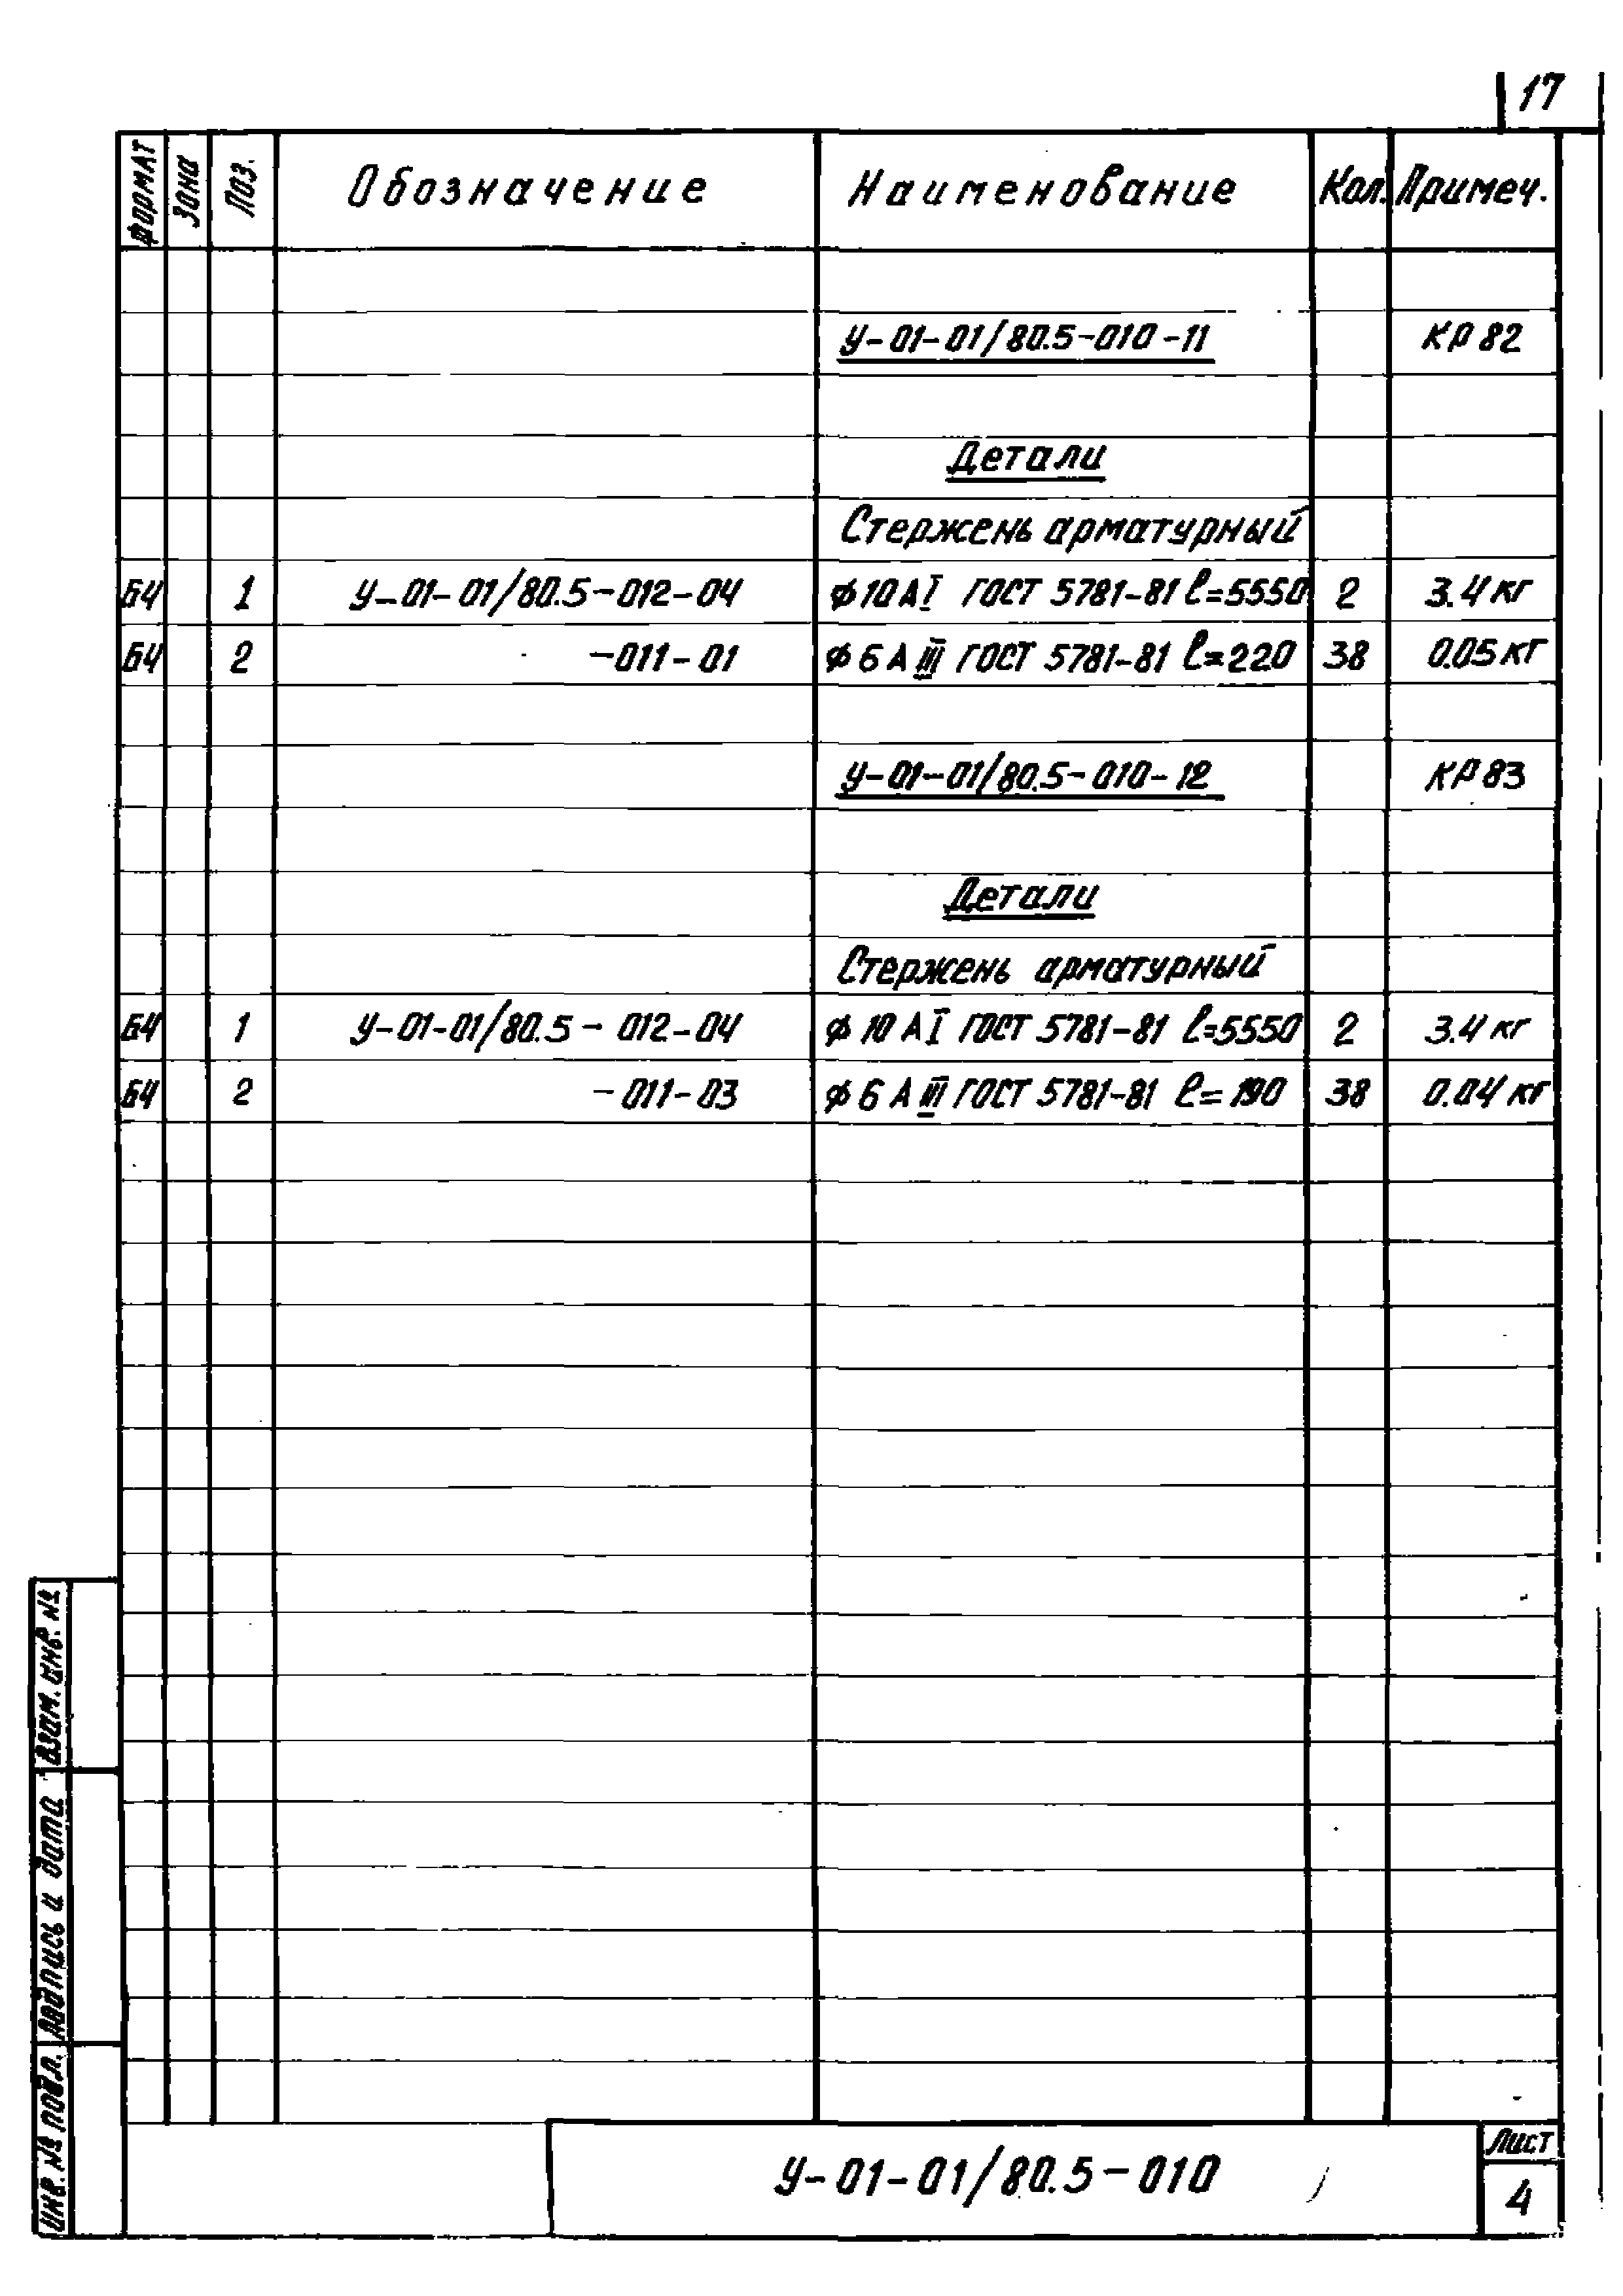 17
Формат Зона Поз. Обозначение Наименование Кол. Примеч.
У-01-01/80.5-010-11 КР 82
Детали
Стержень арматурный
БЧ 1 У-01-01/80.5-012-04 ϕ10 АI ГОСТ 5781-81 ℓ=5550 2 3.4 кг
БЧ 2 -011-01 ϕ6 АIII ГОСТ 5781-81 ℓ=220 38 0.05 кг
У-01-01/80.5-010-12 КР 83
Детали
Стержень арматурный
БЧ 1 У-01-01/80.5-012-04 ϕ10 АI ГОСТ 5781-81 ℓ=5550 2 3.4 кг
БЧ 2 -011-03 ϕ6 АIII ГОСТ 5781-81 ℓ=190 38 0.04 кг
Взам. инв. №
Подпись и дата
Инв. № подл.
У-01-01/80.5-010
Лист
4